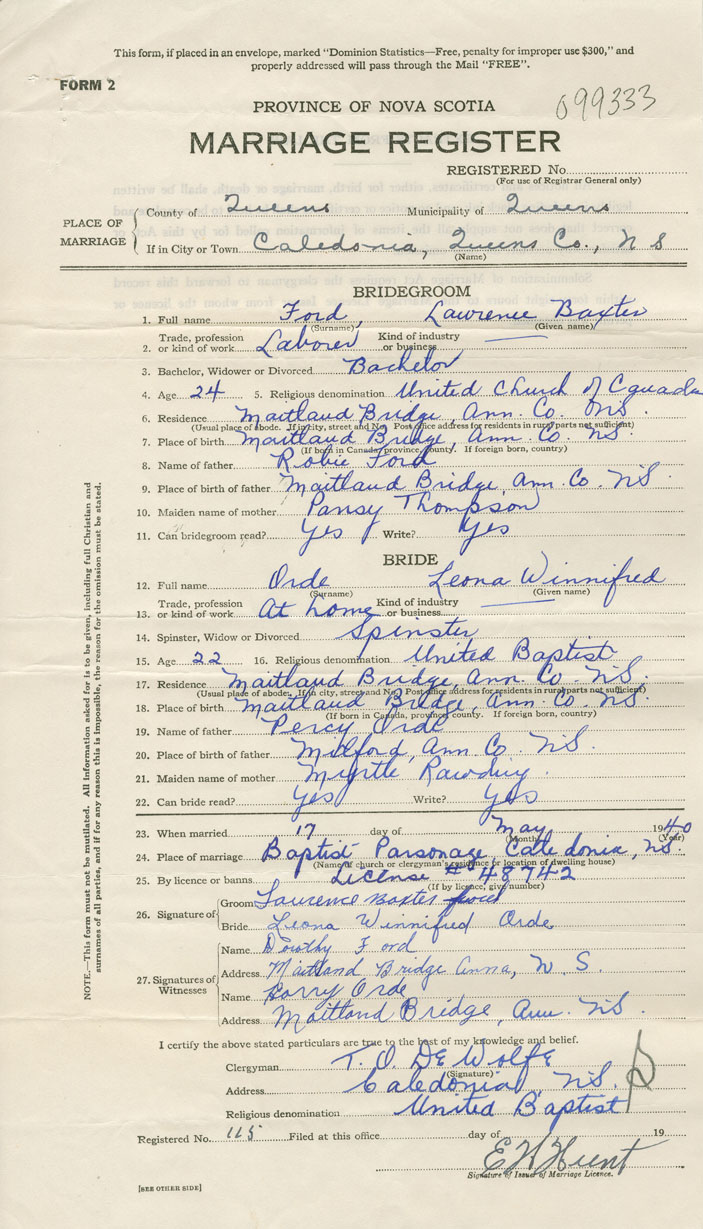 This form, if placed in an envelope, marked "Dominion Statistics—Free, penalty for improper use $300," and
properly addressed will pass through the Mail "FREE".
FORM 2
PROVINCE OF NOVA SCOTIA
099333
MARRIAGE REGISTER
REGISTERED No.
(For use of Registrar General only)
PLACE OF MARRIAGE
County of Queens Municipality of Queens
If in City or Town Caledonia, Queens Co., N S
(Name)
BRIDEGROOM
1. Full name Ford, Lawrence Baxter
(Surname) (Given name)
2. Trade, profession or kind of work Laborer Kind of industry or business —
3. Bachelor, Widower or Divorced Bachelor
4. Age 24 5. Religious denomination United Church of Canada
6. Residence Maitland Bridge, Ann. Co. NS.
(Usual place of abode. If in city, street and No. Post office address for residents in rural parts not sufficient)
7. Place of birth Maitland Bridge, Ann. Co. NS.
(If born in Canada, province, county. If foreign born, country)
8. Name of father Robie Ford
9. Place of birth of father Maitland Bridge, Ann. Co. NS
10. Maiden name of mother Pansy Thompson
11. Can bridegroom read? Yes Write? Yes
BRIDE
12. Full name Orde Leona Winnifred
(Surname) (Given name)
13. Trade, profession or kind of work At home Kind of industry or business —
14. Spinster, Widow or Divorced Spinster
15. Age 22 16. Religious denomination United Baptist
17. Residence Maitland Bridge, Ann. Co. NS.
(Usual place of abode. If in city, street and No. Post office address for residents in rural parts not sufficient)
18. Place of birth Maitland Bridge, Ann. Co. NS.
(If born in Canada, province, county. If foreign born, country)
19. Name of father Percy Orde
20. Place of birth of father Milford, Ann Co. NS.
21. Maiden name of mother Myrtle Rawding
22. Can bride read? Yes Write? Yes
23. When married 17 day of May 1940
(Month) (Year)
24. Place of marriage Baptist Parsonage, Caledonia, NS.
(Name of church or clergyman's residence or location of dwelling house)
25. By licence or banns License # 48742
(If by licence, give number)
26. Signature of
Groom Lawrence Baxter Ford
Bride Leona Winnifred Orde
27. Signatures of Witnesses
Name Dorothy Ford
Address Maitland Bridge Anna, N. S.
Name Harry Orde
Address Maitland Bridge, Ann. NS.
I certify the above stated particulars are true to the best of my knowledge and belief.
Clergyman T. O. DeWolfe
(Signature)
Address Caledonia, NS.
Religious denomination United Baptist
Registered No. 115 Filed at this office day of 19
E H Hunt
Signature of Issuer of Marriage Licence.
[SEE OTHER SIDE]
NOTE.—This form must not be mutilated. All information asked for is to be given, including full Christian and
surnames of all parties, and if for any reason this is impossible, the reason for the omission must be stated.